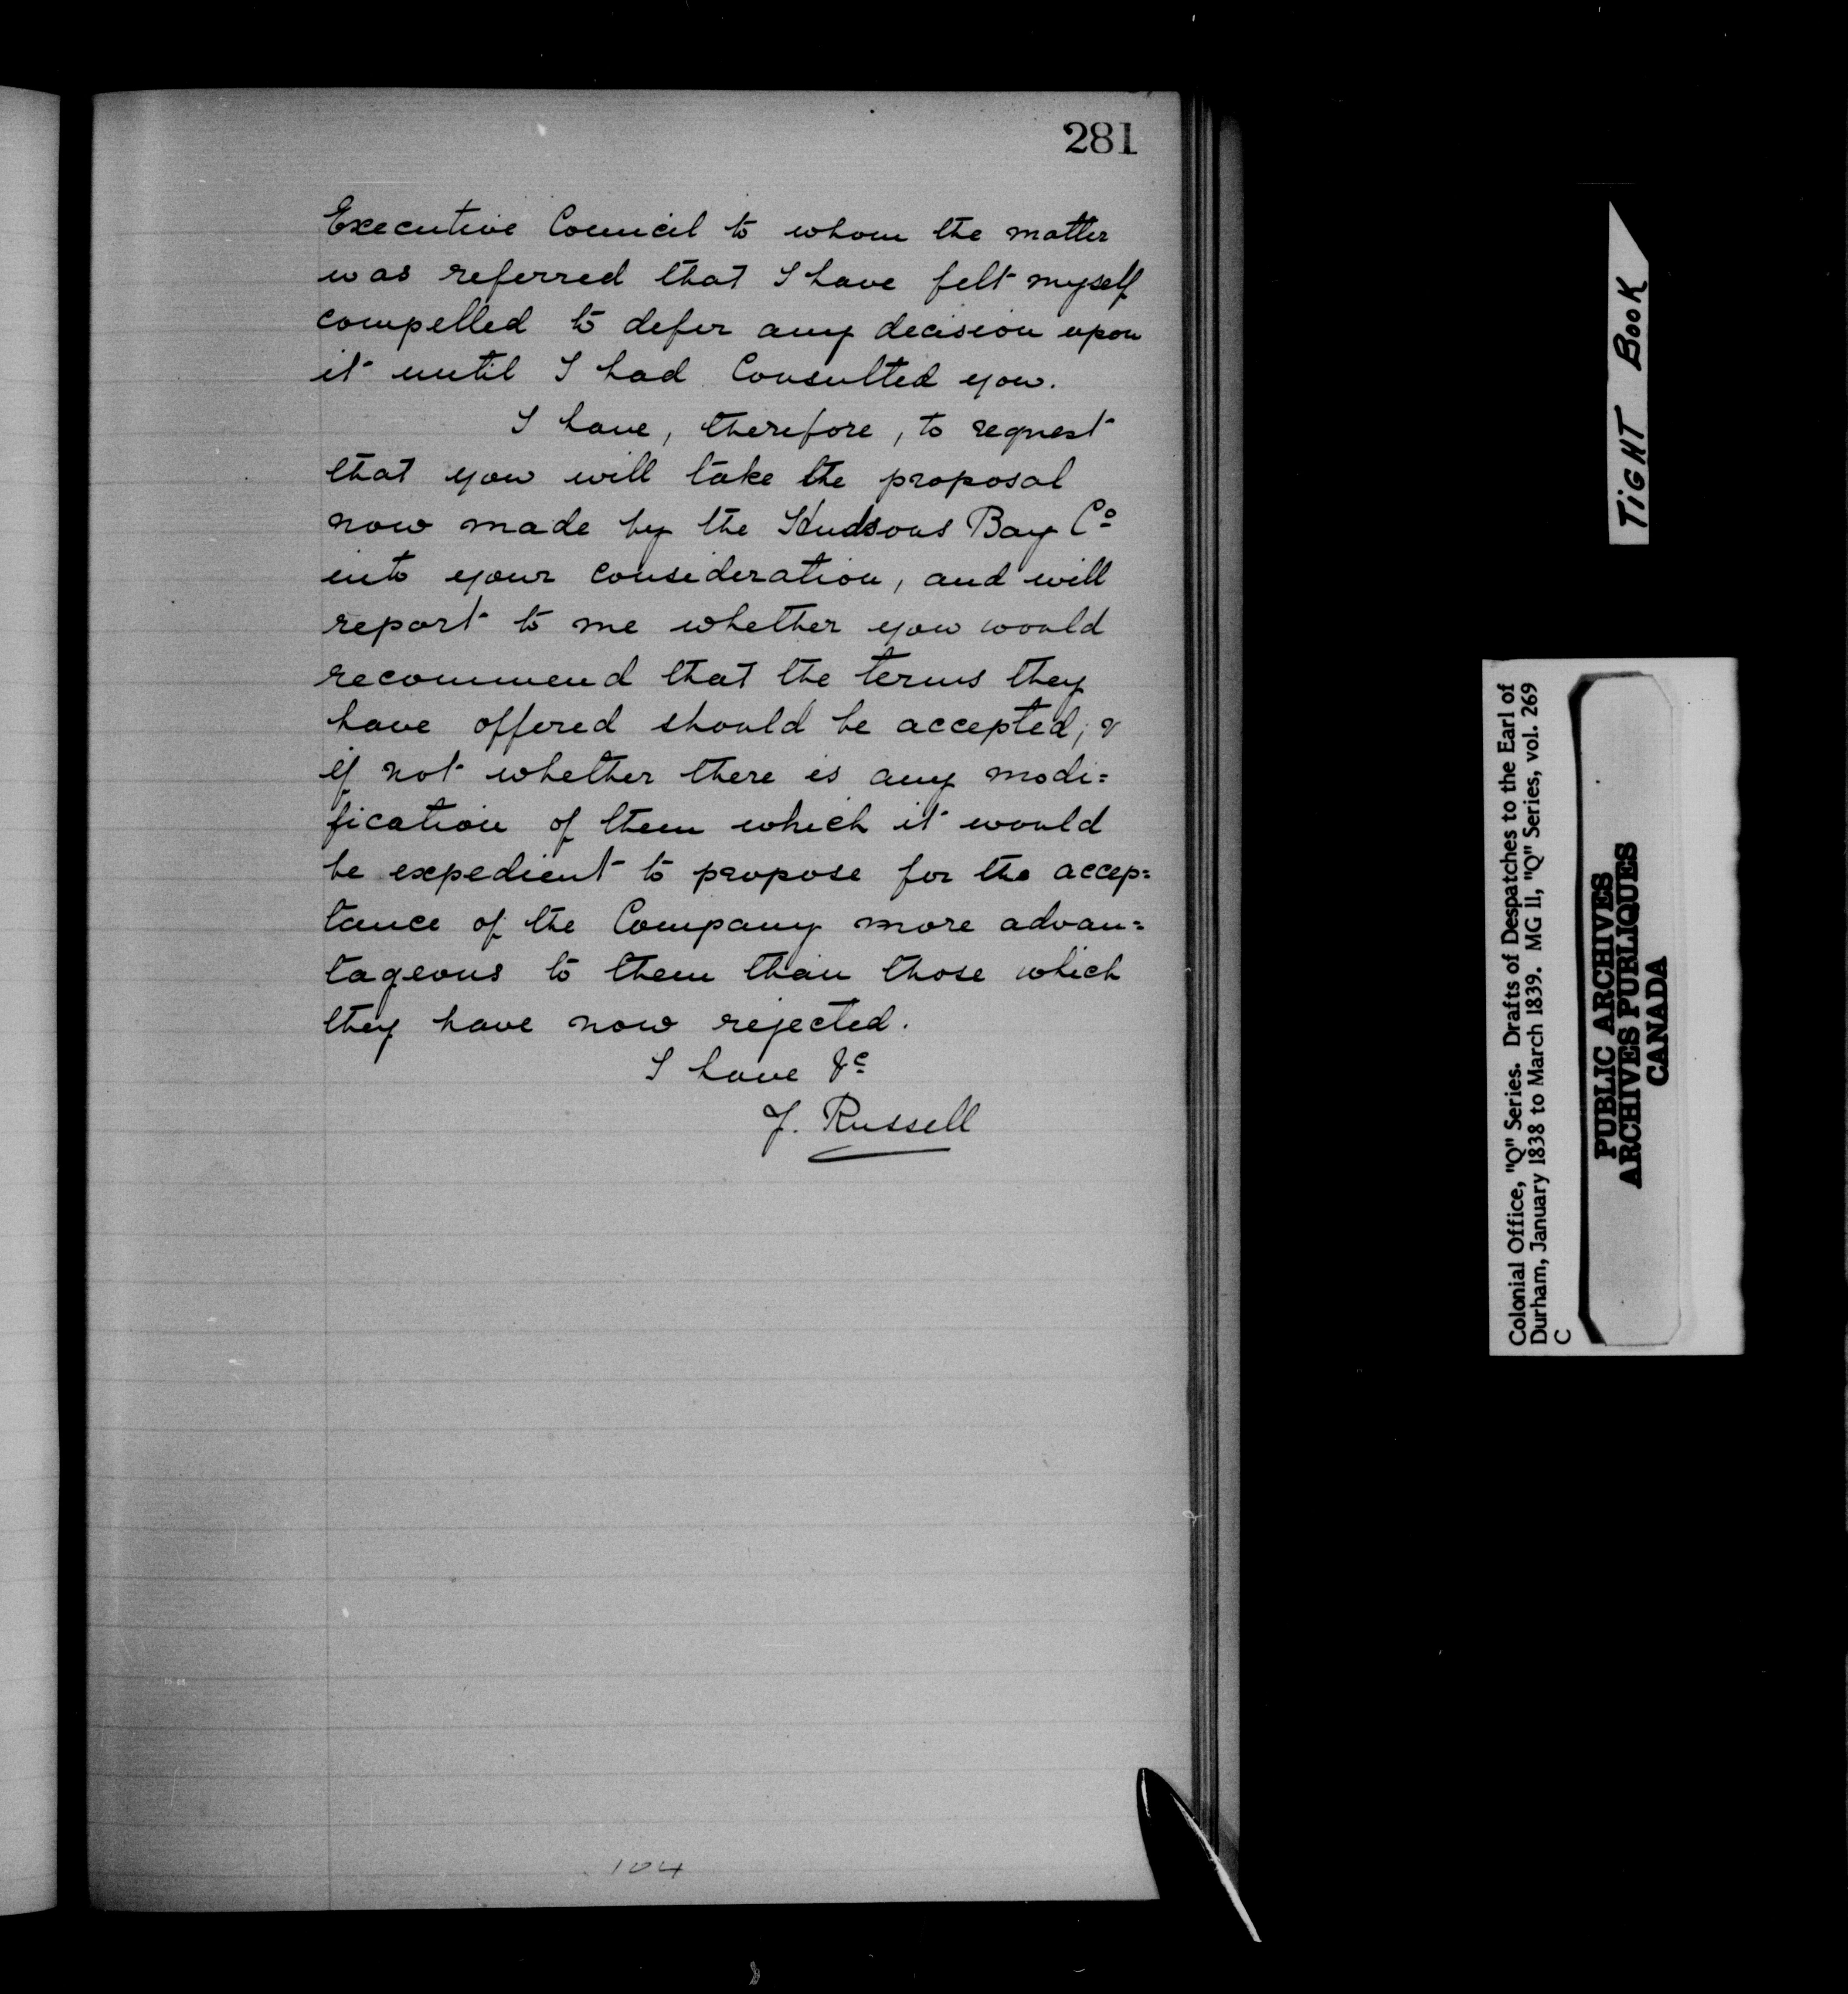 281
Executive Council to whom the matter
was referred that I have felt myself
compelled to defer any decision upon
it until I had Consulted you.
I have, therefore, to request
that you will take the proposal
now made by the Hudsons Bay Co
into your consideration, and will
report to me whether you would
recommend that the terms they
have offered should be accepted; &
if not whether there is any modi=
fication of them which it would
be expedient to propose for the accep=
tance of the Company more advan=
tageous to them than those which
they have now rejected.
I have &c
J. Russell
104
TIGHT BOOK
Colonial Office, "Q" Series. Drafts of Despatches to the Earl of
Durham, January 1838 to March 1839. MG 11, "Q" Series, vol. 269
C
PUBLIC ARCHIVES
ARCHIVES PUBLIQUES
CANADA